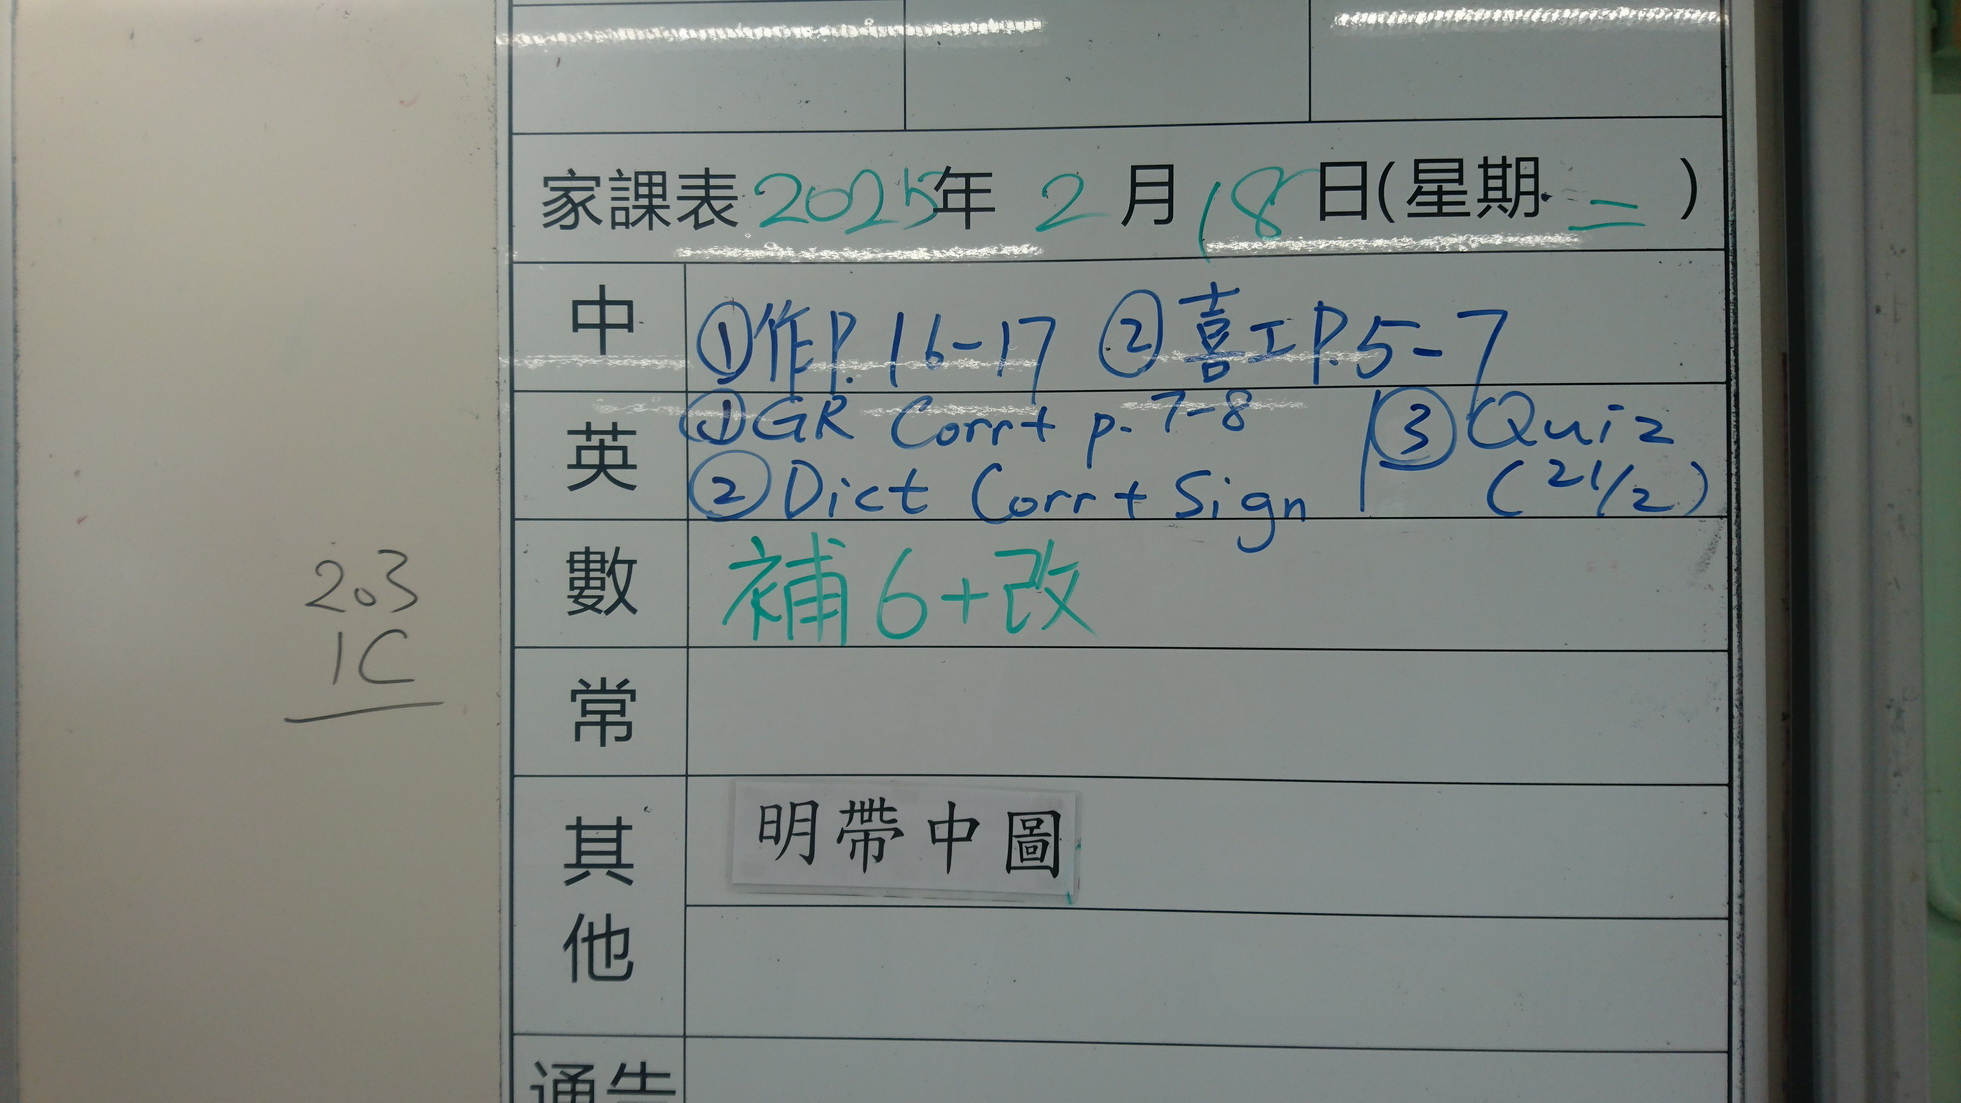 家課表 2025年 2月 18日(星期 二 )
中 ①作P.16-17 ②喜工P.5-7
英 ①GR Corr+ p.7-8 ③Quiz
②Dict Corr+Sign (21/2)
數 補6+改
203
1C
常
其他 明帶中圖
通告